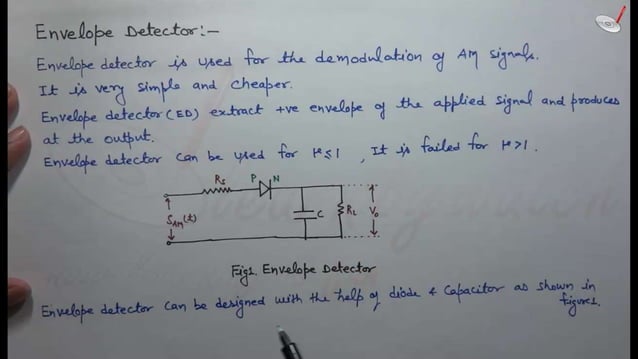 Envelope Detector:-
Envelope detector is used for the demodulation of AM signals.
It is very simple and cheaper.
Envelope detector(ED) extract +ve envelope of the applied signal and produces
at the output.
Envelope detector can be used for μ≤1 , It is failed for μ>1.
Rs P N
SAM(t) C RL Vo
Fig1. Envelope Detector
Envelope detector can be designed with the help of diode & capacitor as shown in
figure1.